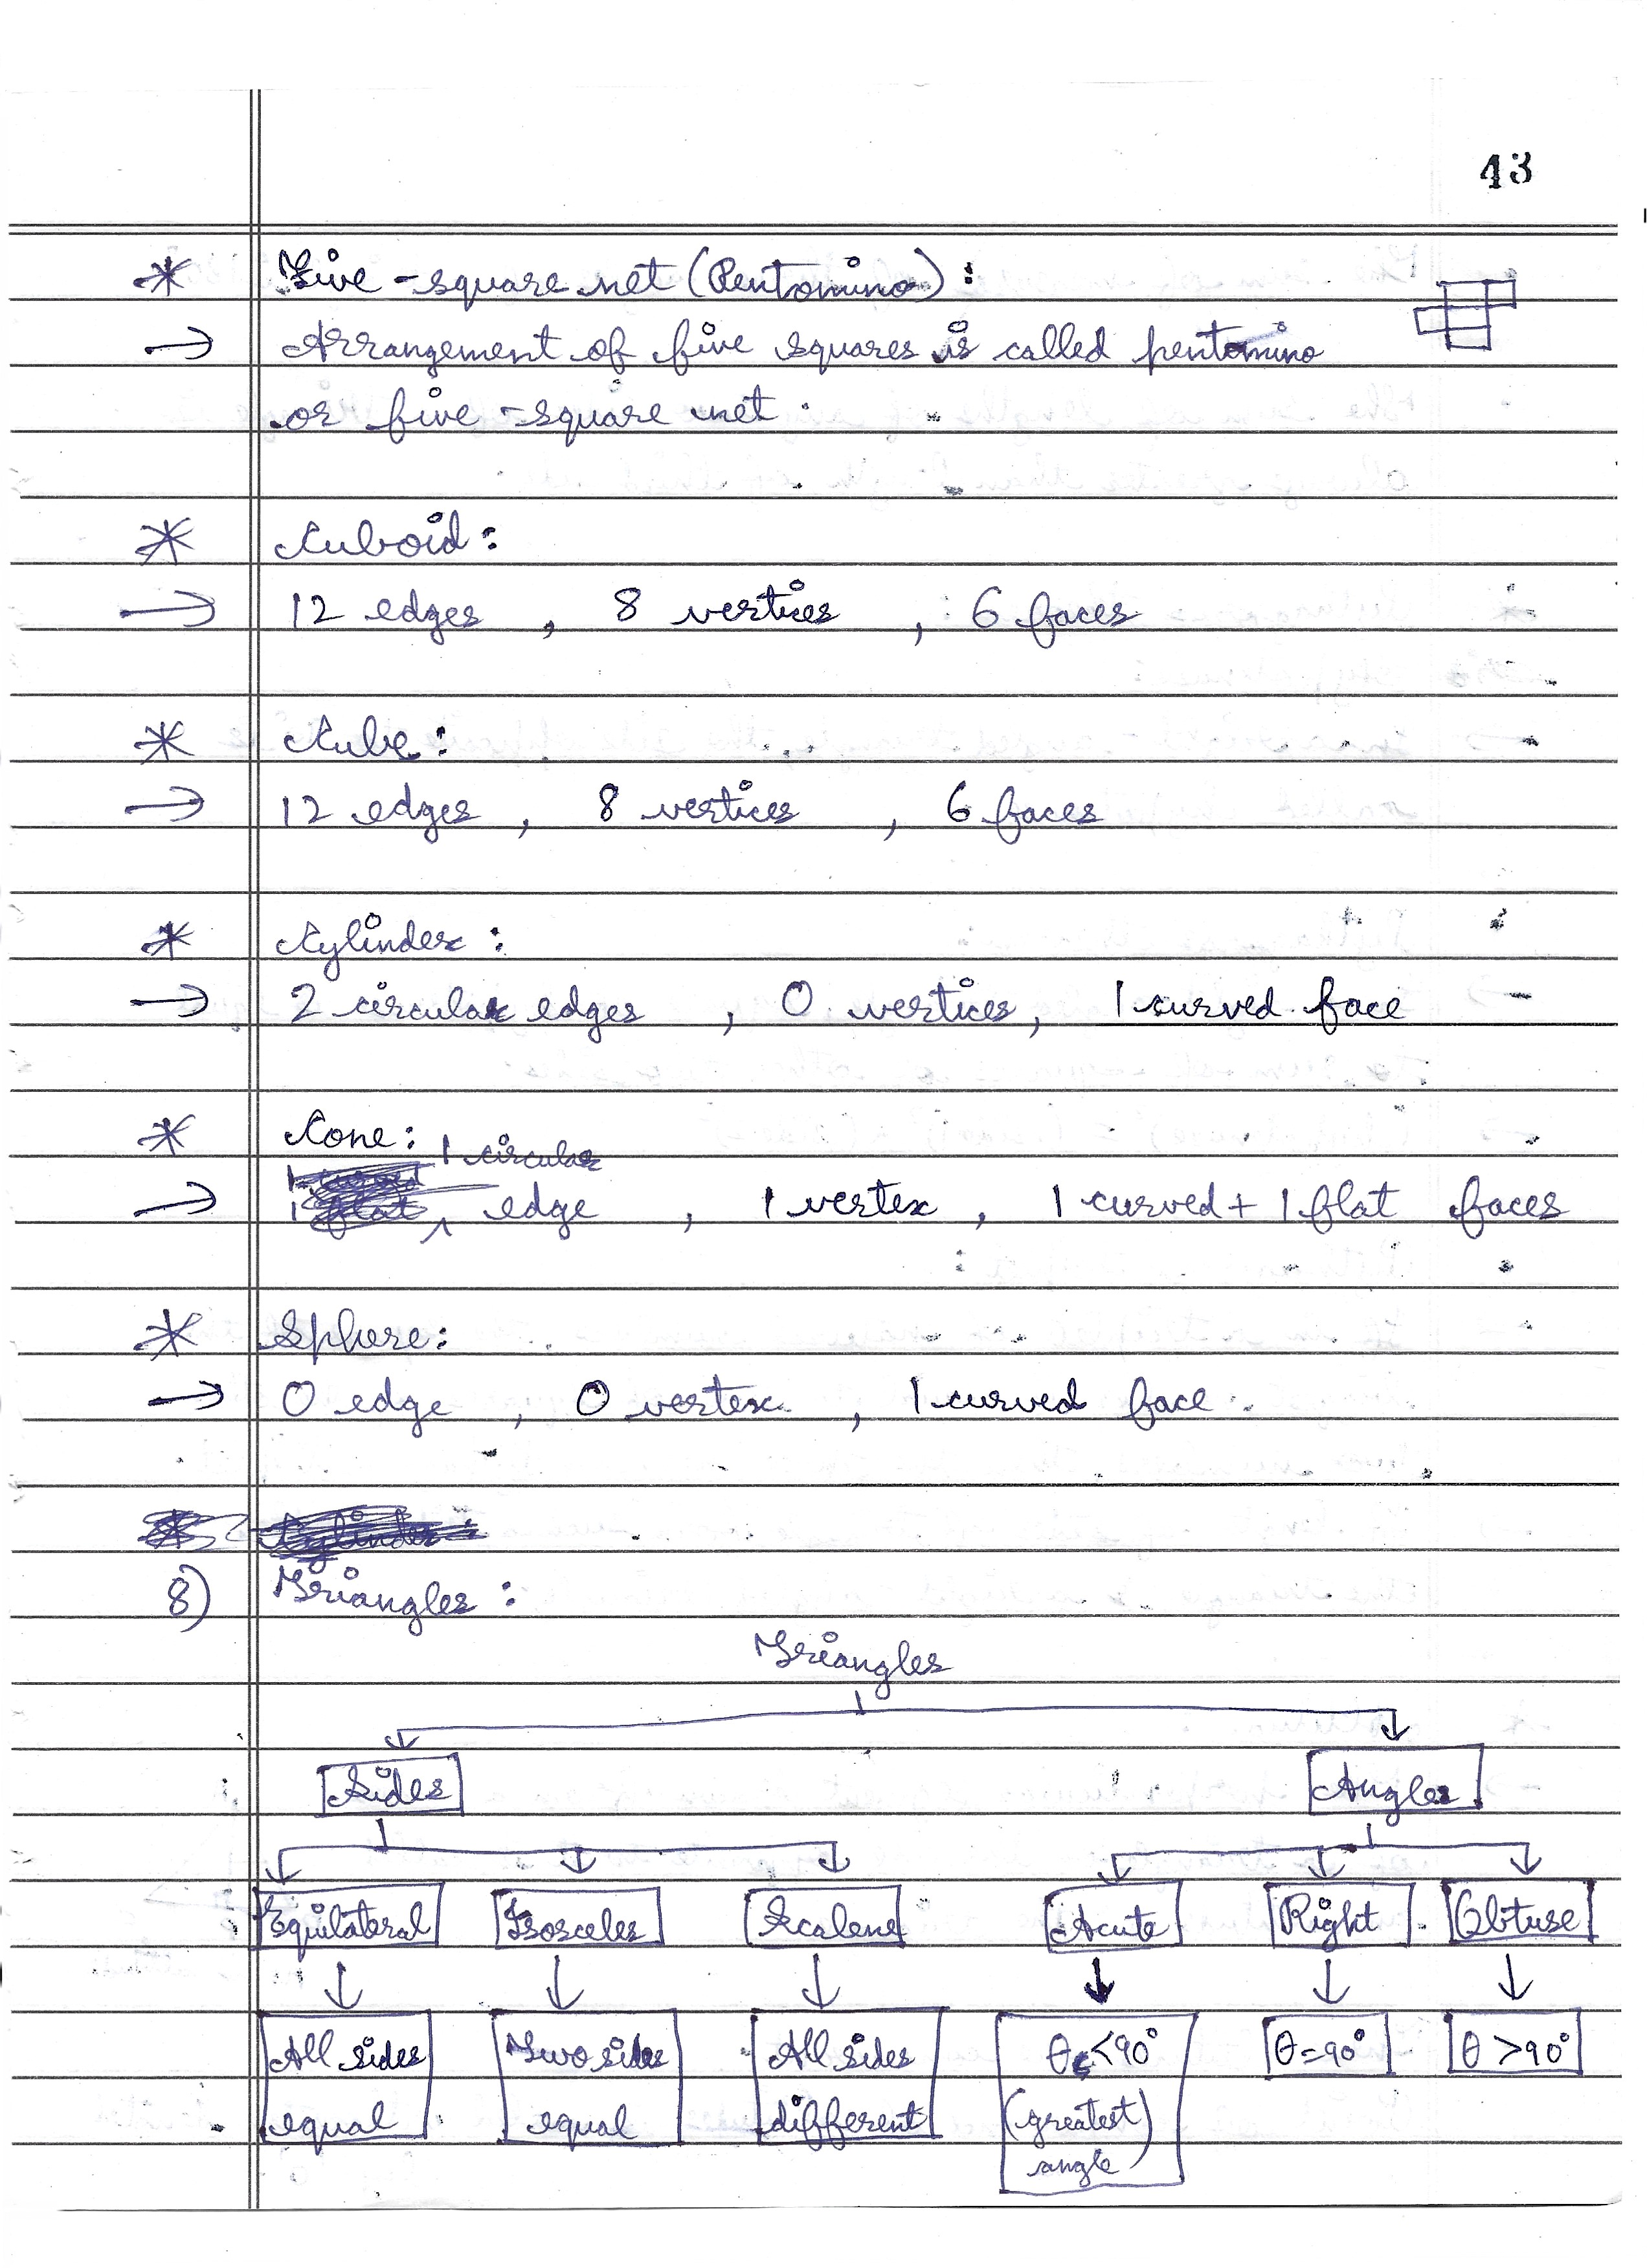 43
* Five-square net (Pentomino) :
→ Arrangement of five squares is called pentomino
or five-square net.
* Cuboid :
→ 12 edges , 8 vertices , 6 faces
* Cube :
→ 12 edges , 8 vertices , 6 faces
* Cylinder :
→ 2 circular edges , 0 vertices , 1 curved face
* Cone :
1 circular
→ edge , 1 vertex , 1 curved + 1 flat faces
* Sphere :
→ 0 edge , 0 vertex , 1 curved face
8) Triangles :
Triangles
Sides Angles
Equilateral Isosceles Scalene Acute Right Obtuse
All sides Two sides All sides θ < 90° θ = 90° θ > 90°
equal equal different (greatest)
angle